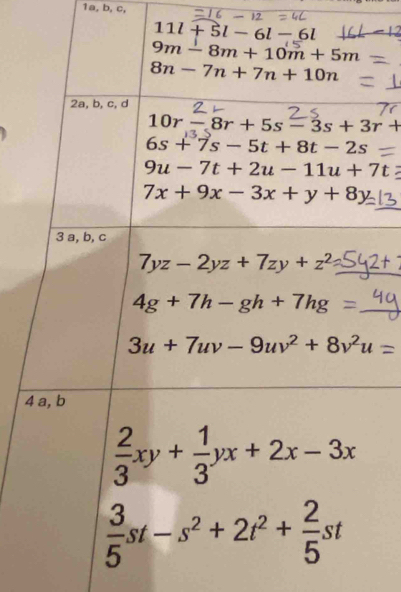 1a, b, c,
=16 - 12 = 4L
11l + 5l − 6l − 6l 16L-12
9m − 8m + 10m + 5m =
8n − 7n + 7n + 10n =
2a, b, c, d
2r 2s 7r
10r − 8r + 5s − 3s + 3r +
13s
6s + 7s − 5t + 8t − 2s =
9u − 7t + 2u − 11u + 7t =
7x + 9x − 3x + y + 8y =13
3 a, b, c
7yz − 2yz + 7zy + z² =5yz+
4g + 7h − gh + 7hg = 4g
3u + 7uv − 9uv² + 8v²u =
4 a, b
2/3xy + 1/3yx + 2x − 3x
3/5st − s² + 2t² + 2/5st